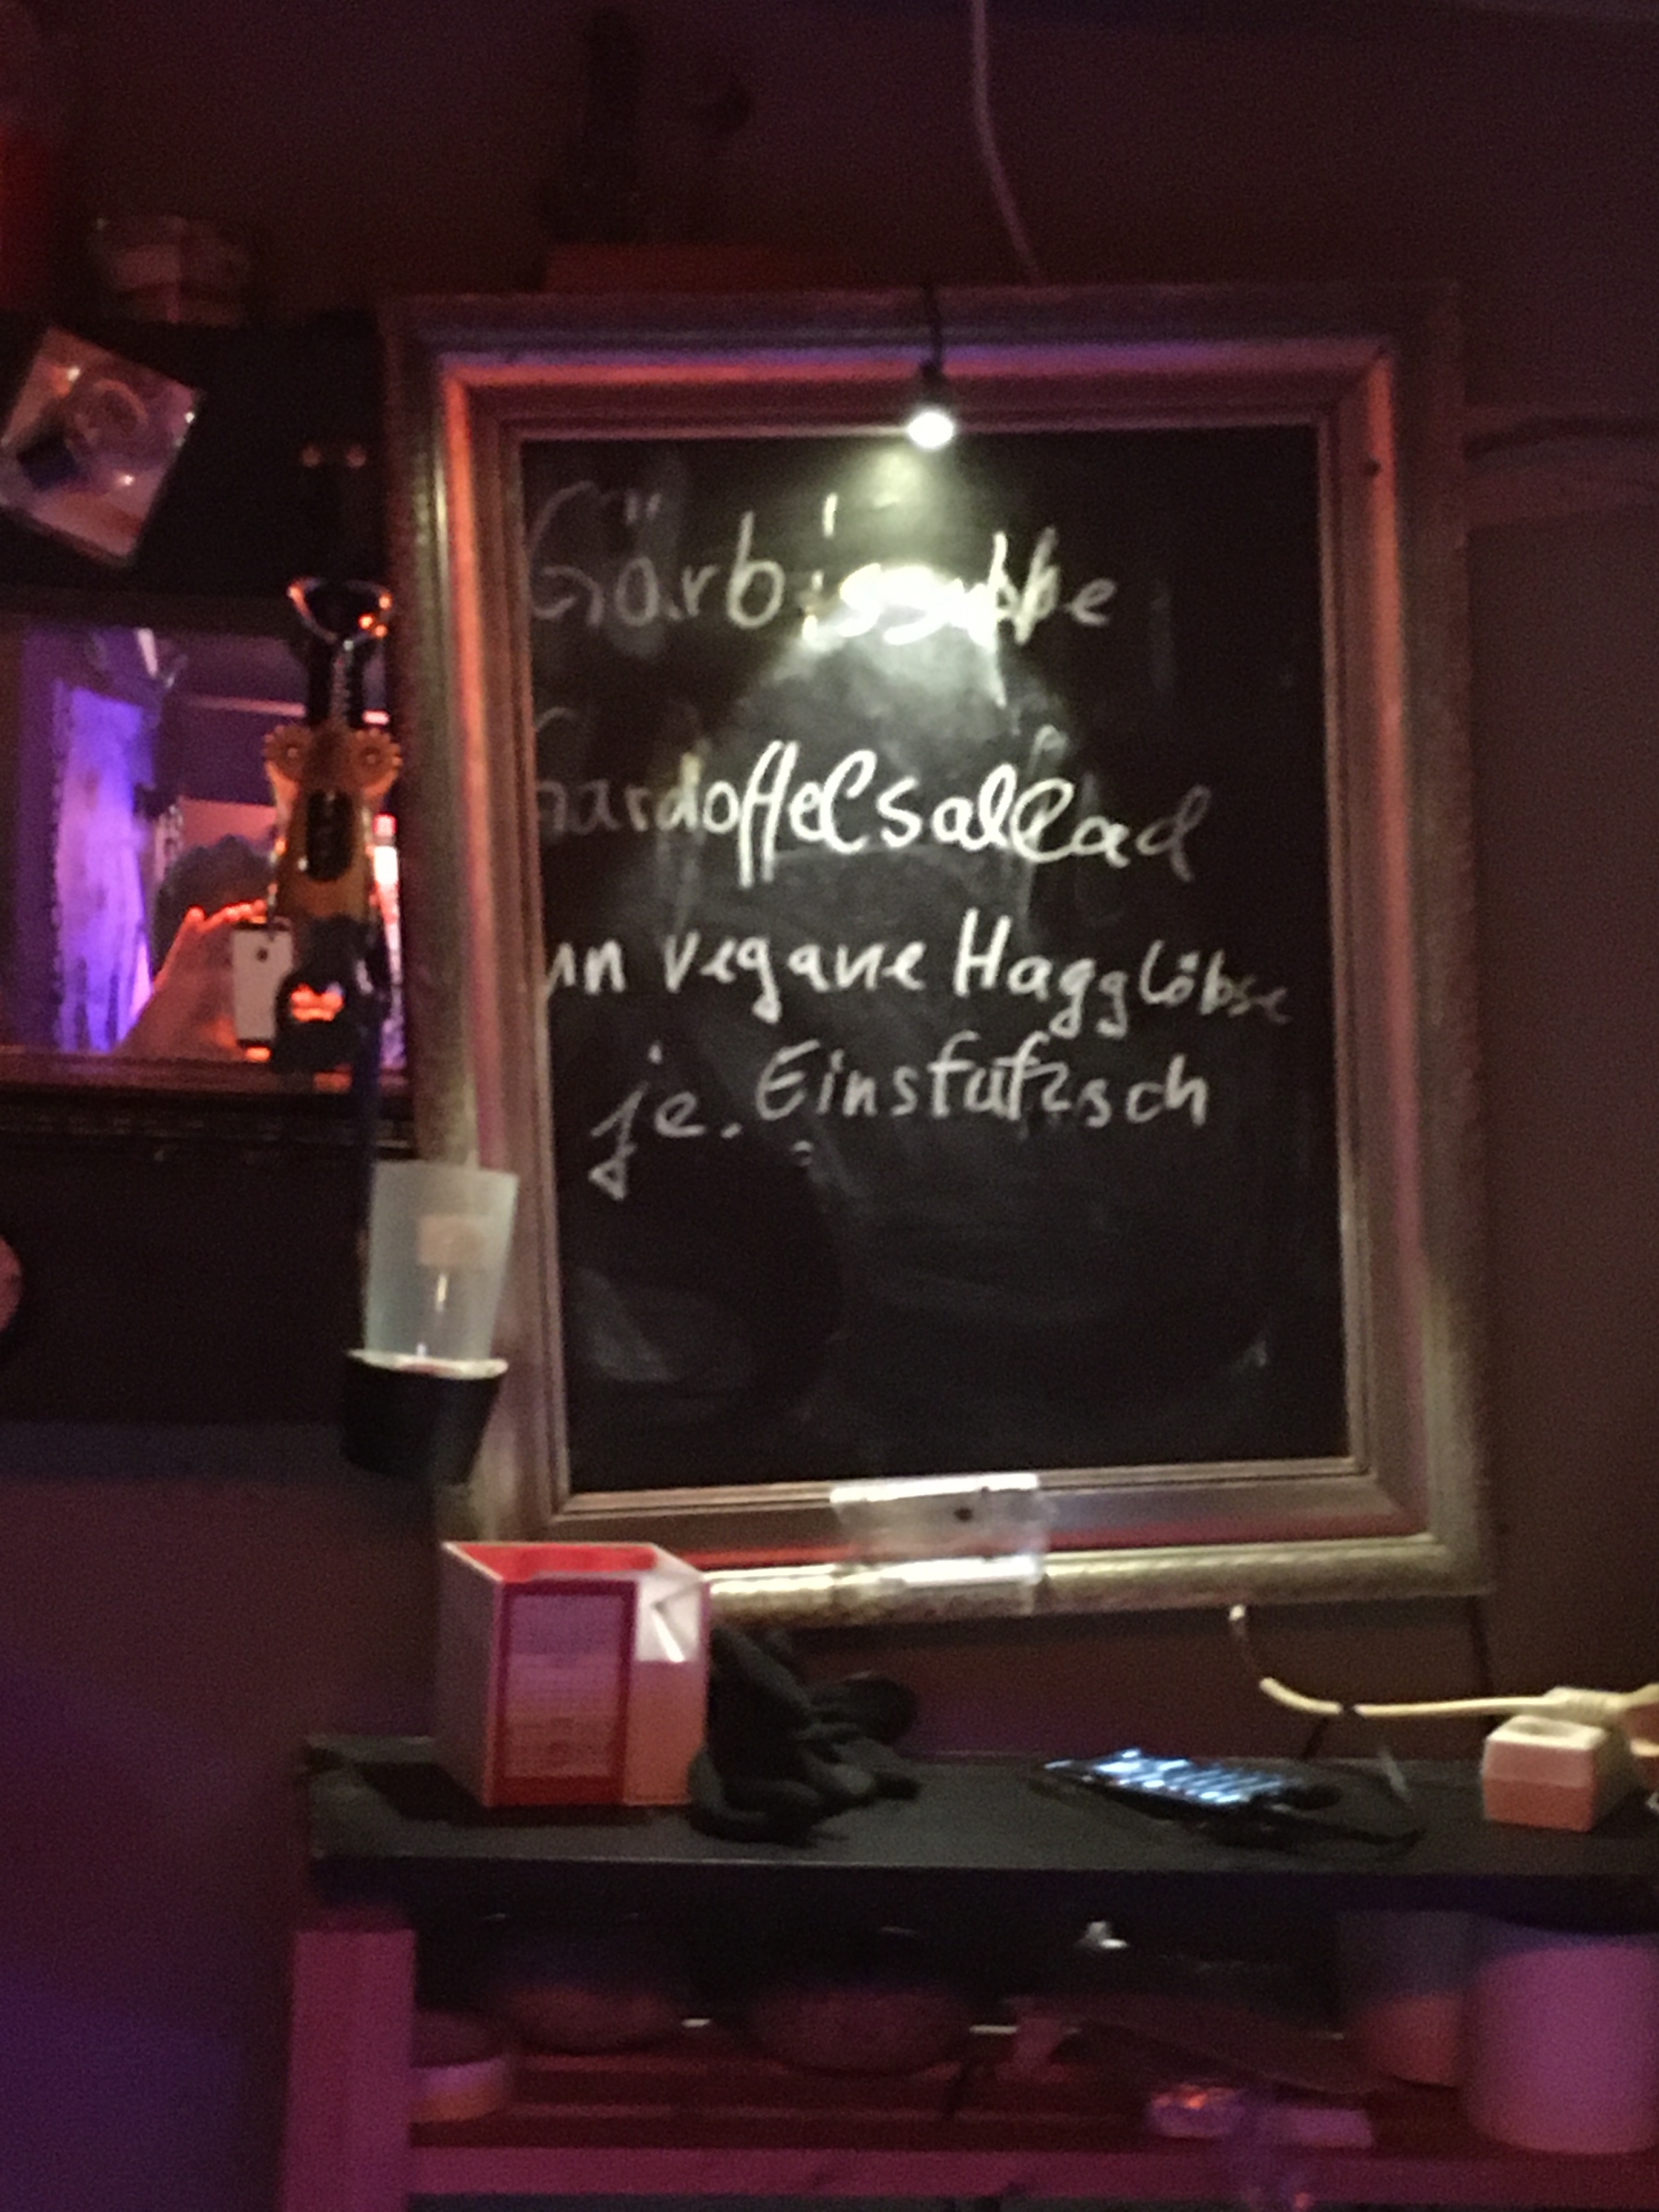 Gärbissubbe
Gardoffelsallad
un vegane Hagglöbse
je. Einsfufzsch